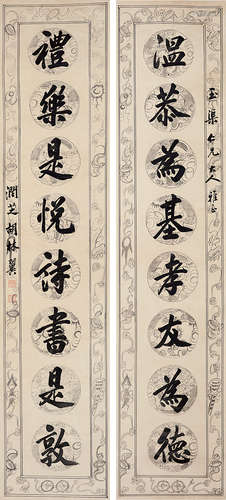 玉渠仁兄大人雅正
溫恭為基孝友為德
禮樂是悅詩書是敦
潤芝胡林翼